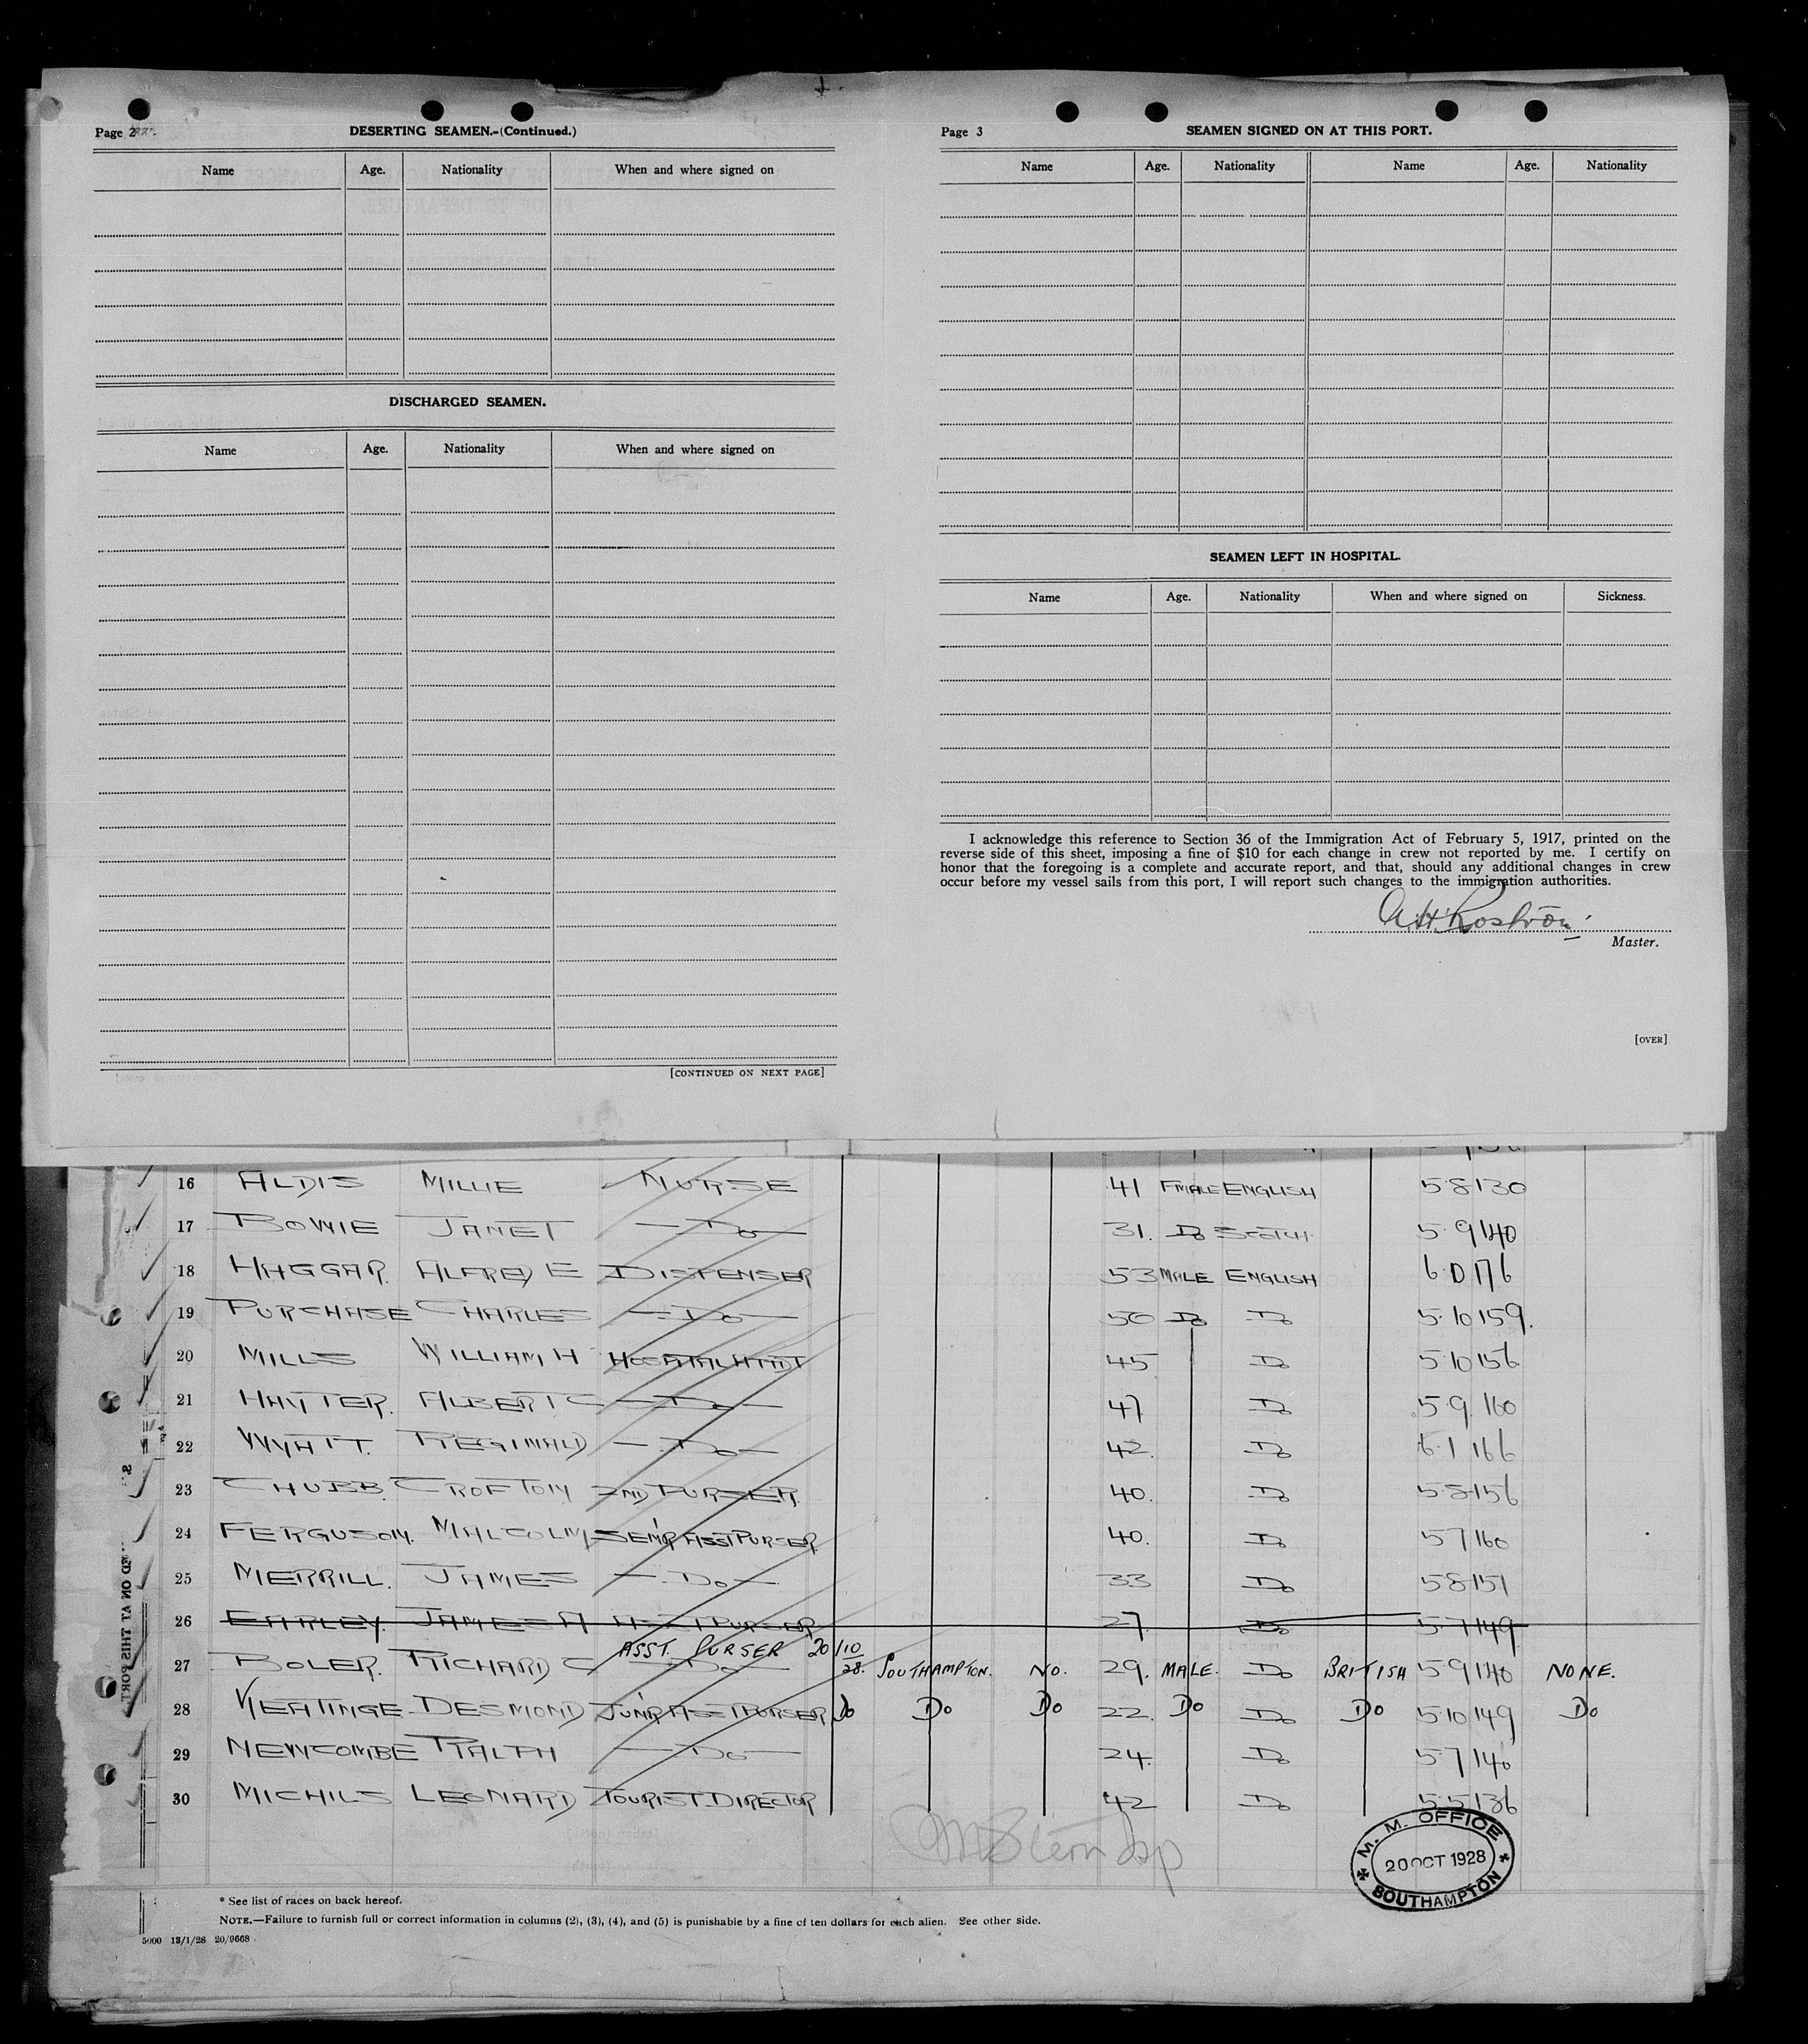 Page 2
DESERTING SEAMEN.-(Continued.)
Name Age. Nationality When and where signed on
DISCHARGED SEAMEN.
Name Age. Nationality When and where signed on
[CONTINUED ON NEXT PAGE]
Page 3
SEAMEN SIGNED ON AT THIS PORT.
Name Age. Nationality Name Age. Nationality
SEAMEN LEFT IN HOSPITAL.
Name Age. Nationality When and where signed on Sickness.
I acknowledge this reference to Section 36 of the Immigration Act of February 5, 1917, printed on the
reverse side of this sheet, imposing a fine of $10 for each change in crew not reported by me. I certify on
honor that the foregoing is a complete and accurate report, and that, should any additional changes in crew
occur before my vessel sails from this port, I will report such changes to the immigration authorities.
A.H. Rostron
Master.
[OVER]
16 ALDIS MILLIE NURSE 41 FMALE ENGLISH 5·8 130
17 BOWIE JANET — Do — 31. Do SCOTCH 5·9 140
18 HAGGAR. ALFRED E DISPENSER 53 MALE ENGLISH 6·0 176
19 PURCHASE CHARLES — Do — 50 Do Do 5·10 159.
20 MILLS WILLIAM H HOSPITAL ATTDT 45 Do 5·10 156
21 HAYTER. ALBERT C — Do — 47 Do 5·9 160
22 WYATT. REGINALD — Do — 42. Do 6·1 166
23 CHUBB. CROFTON 2ND PURSER. 40. Do 5·8 156
24 FERGUSON. MALCOLM SEN'R ASST PURSER. 40. Do 5·7 160
25 MERRILL. JAMES — Do — 33 Do 5·8 151
26 EARLEY. JAMES A ASST PURSER 27. Do 5·7 149
27 BOLER. RICHARD C — Do — ASST. PURSER 20/10/28. SOUTHAMPTON. NO. 29. MALE. Do BRITISH 5·9 140 NONE.
28 KEATINGE DESMOND JUN'R ASST PURSER Do Do Do 22. Do Do Do 5·10 149 Do
29 NEWCOMBE RALPH — Do — 24. Do 5·7 140
30 MICHILS LEONARD TOURIST DIRECTOR 42 Do 5·5 136
M. M. OFFICE
20 OCT 1928
SOUTHAMPTON
* See list of races on back hereof.
NOTE.—Failure to furnish full or correct information in columns (2), (3), (4), and (5) is punishable by a fine of ten dollars for each alien. See other side.
5000 13/1/28 20/9668